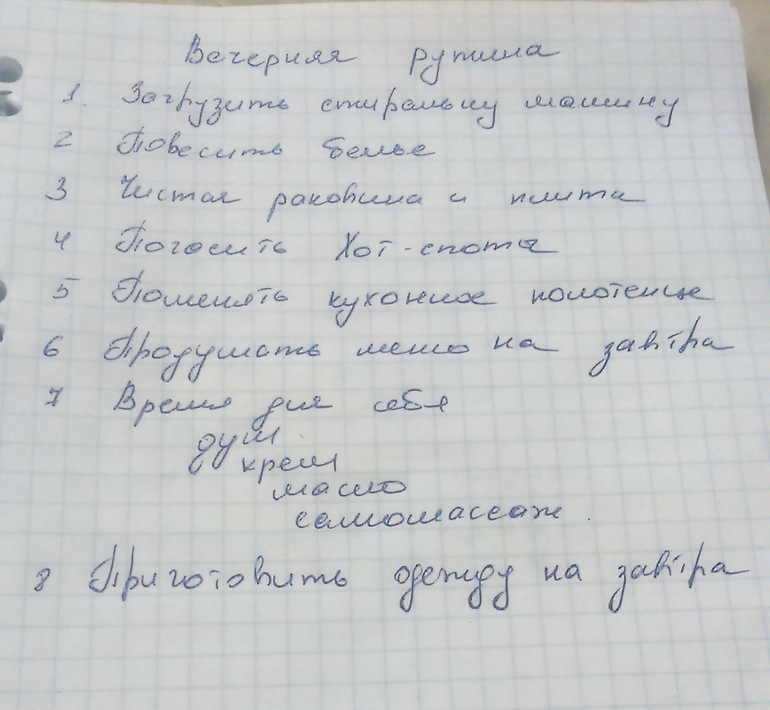 Вечерняя рутина
1. Загрузить стиральну машину
2 Повесить белье
3 Чистая раковина и плита
4 Погасить Хот-спота
5 Поменять кухонное полотенце
6 Продумать меню на завтра
7 Время для себя
душ
крем
масло
самомассаж.
8 Приготовить одежду на завтра